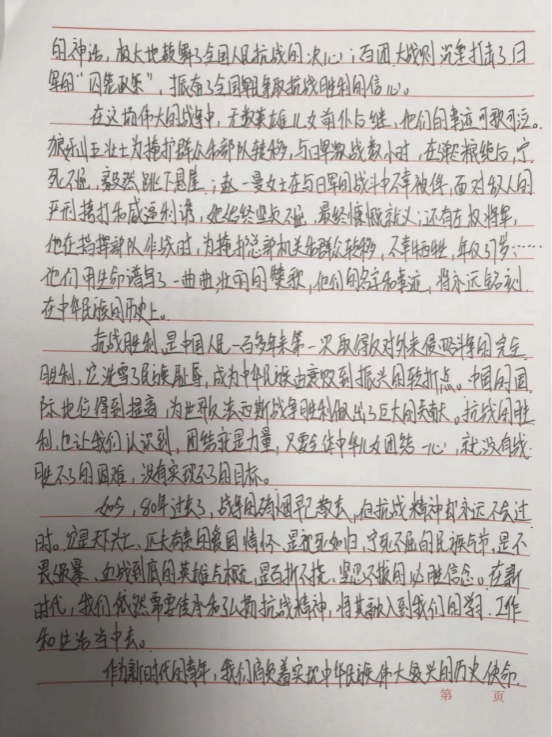 的神话，极大地鼓舞了全国人民抗战的决心；百团大战则沉重打击了日
军的“囚笼政策”，振奋了全国军民争取抗战胜利的信心。
在这场伟大的战争中，无数英雄儿女前仆后继，他们的事迹可歌可泣。
狼牙山五壮士为掩护群众和部队转移，与日军激战数小时，在弹尽粮绝后，宁
死不屈，毅然跳下悬崖；赵一曼女士在与日军的战斗中不幸被俘，面对敌人的
严刑拷打和威逼利诱，她始终坚贞不屈，最终慷慨就义；还有左权将军，
他在指挥部队作战时，为掩护总部机关和群众转移，不幸牺牲，年仅37岁……
他们用生命谱写了一曲曲壮丽的赞歌，他们的名字和事迹，将永远铭刻
在中华民族的历史上。
抗战胜利，是中国人民一百多年来第一次取得反对外来侵略斗争的完全
胜利，它洗雪了民族耻辱，成为中华民族由衰败到振兴的转折点。中国的国
际地位得到提高，为世界反法西斯战争胜利做出了巨大的贡献。抗战的胜
利，也让我们认识到，团结就是力量，只要全体中华儿女团结一心，就没有战
胜不了的困难，没有实现不了的目标。
如今，80年过去了，战争的硝烟早已散去，但抗战精神却永远不会过
时。它是天下兴亡、匹夫有责的爱国情怀，是视死如归，宁死不屈的民族气节，是不
畏强暴、血战到底的英雄气概，是百折不挠、坚忍不拔的必胜信念。在新
时代，我们依然需要传承和弘扬抗战精神，将其融入到我们的学习、工作
和生活当中去。
作为新时代的青年，我们肩负着实现中华民族伟大复兴的历史使命
第 页